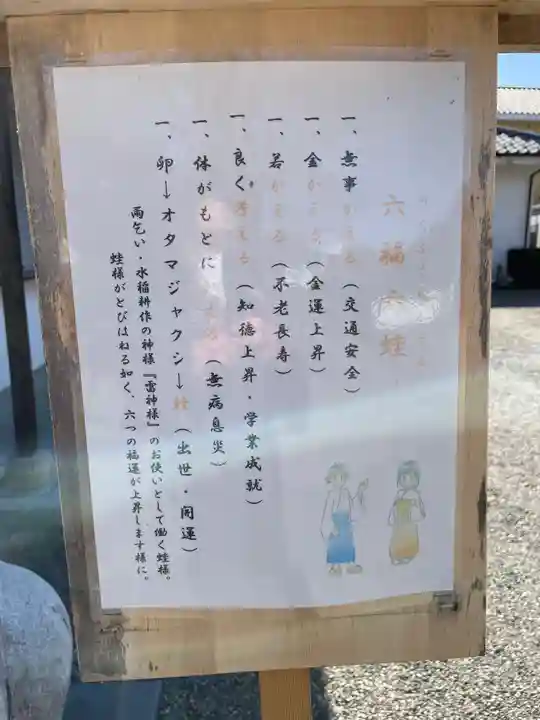 六福六蛙
一、無事かえる（交通安全）
一、金かえる（金運上昇）
一、若がえる（不老長寿）
一、良く考える（知徳上昇・学業成就）
一、体がもとにかえる（無病息災）
一、卵→オタマジャクシ→蛙（出世・開運）
雨乞い・水稲耕作の神様『雷神様』のお使いとして働く蛙様。
蛙様がとびはねる如く、六つの福運が上昇します様に。